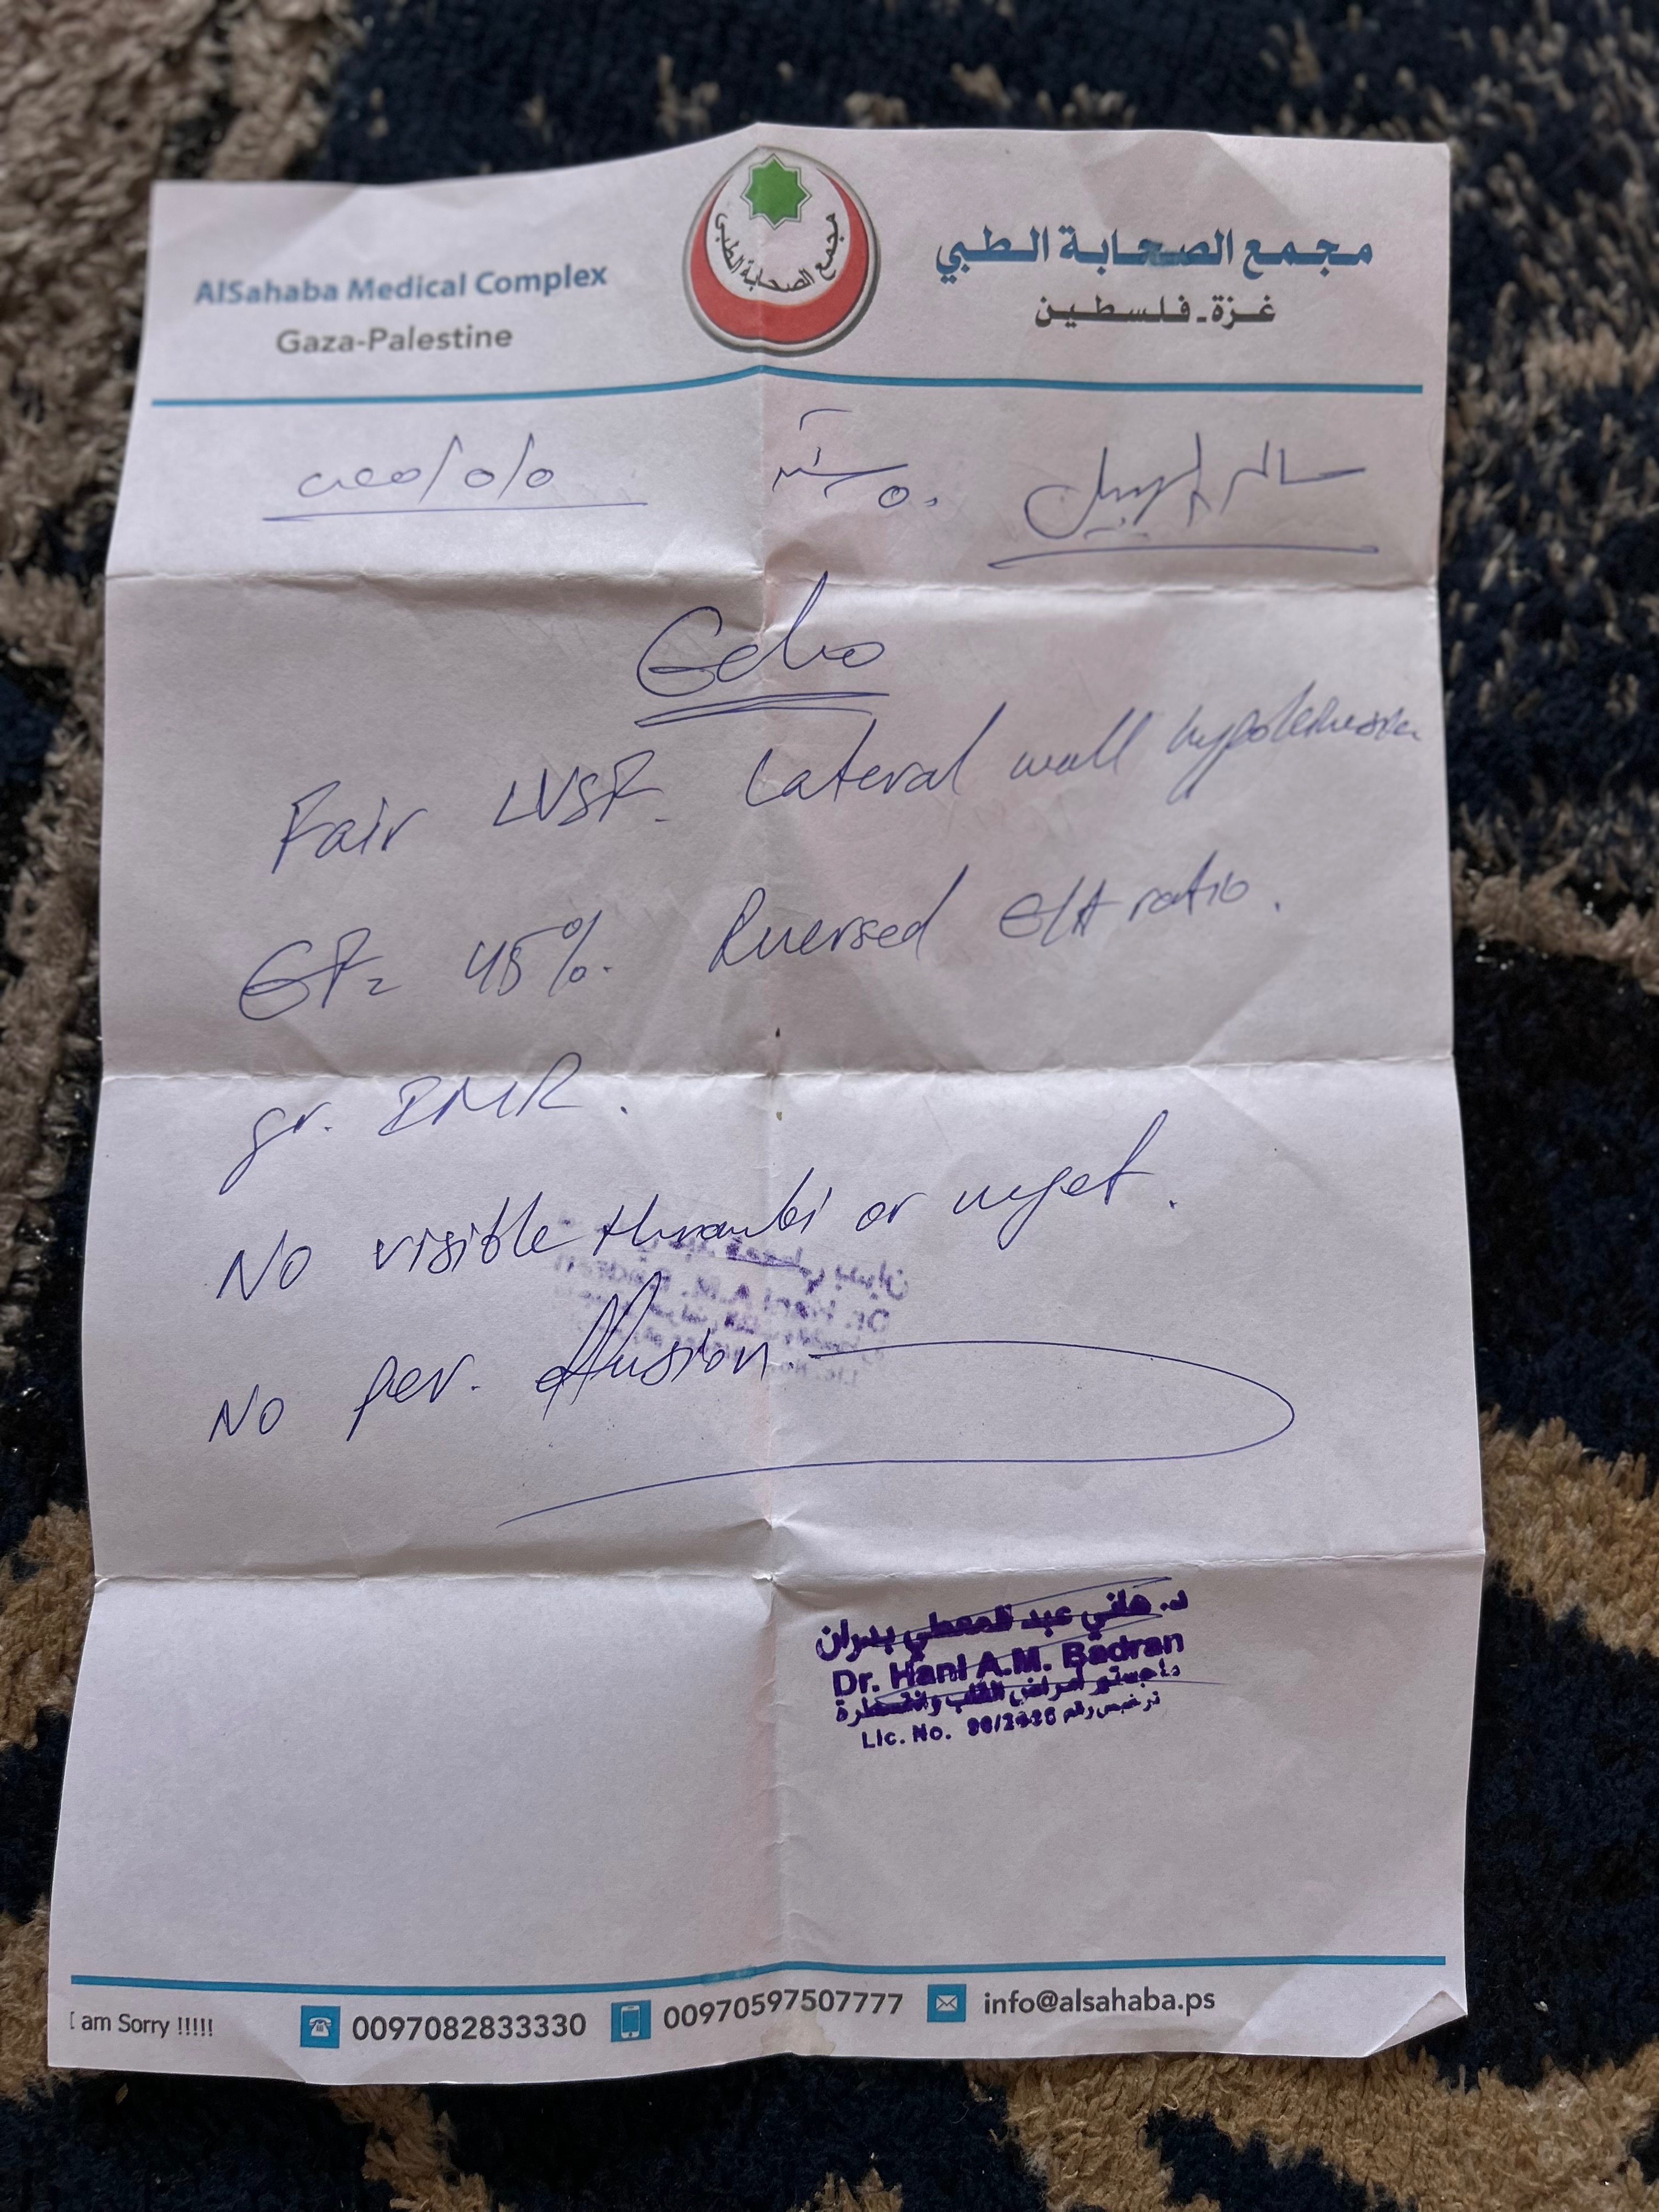 AlSahaba Medical Complex
Gaza-Palestine
مجمع الصحابة الطبي
مجمع الصحابة الطبي
غزة - فلسطين
سالم
Echo
Fair LVSF. Lateral wall hypokinesia
EF= 45%. Reversed E/A ratio.
gr. I MR.
No visible thrombi or veget.
No per. effusion.
د. هاني عبد المعطي بدران
Dr. Hani A.M. Badran
ماجستير أمراض القلب والقسطرة
Lic. No. ترخيص رقم
I am Sorry !!!!!
0097082833330
00970597507777
info@alsahaba.ps